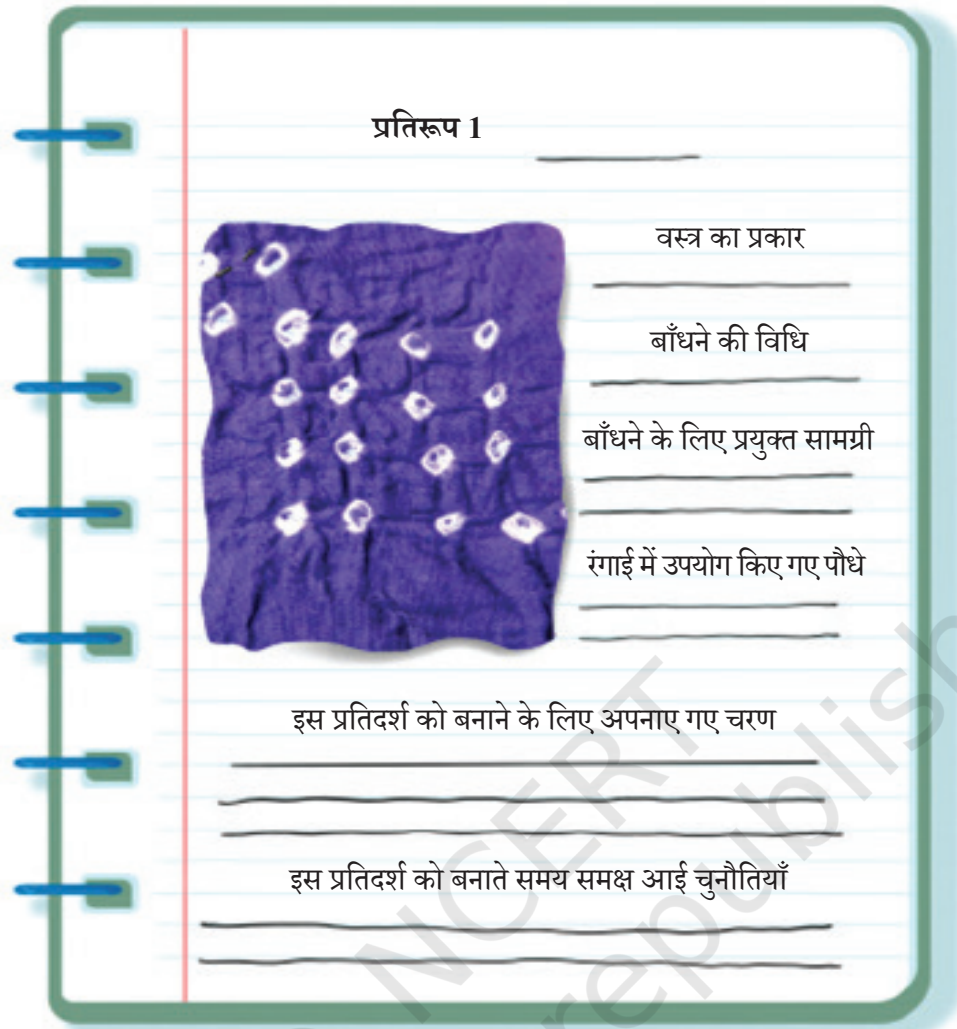 प्रतिरूप 1
वस्त्र का प्रकार
बाँधने की विधि
बाँधने के लिए प्रयुक्त सामग्री
रंगाई में उपयोग किए गए पौधे
इस प्रतिदर्श को बनाने के लिए अपनाए गए चरण
इस प्रतिदर्श को बनाते समय समक्ष आई चुनौतियाँ
NCERT
republish